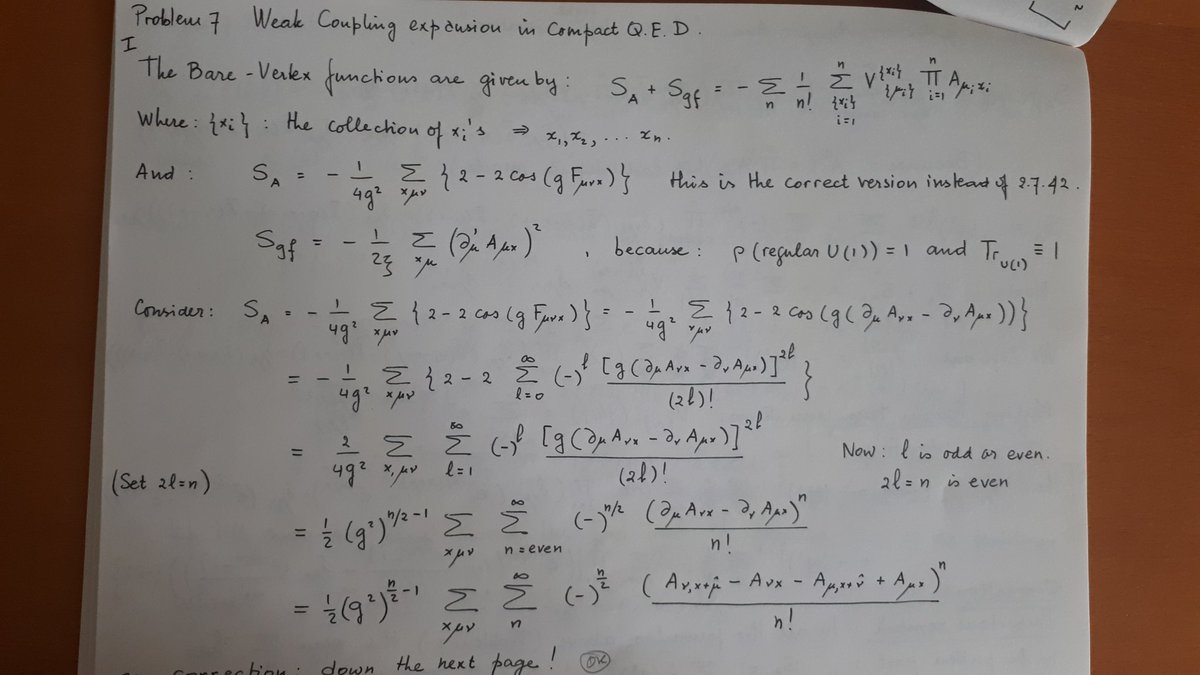 Problem 7 Weak Coupling expansion in Compact Q.E.D.
I
The Bare-Vertex functions are given by: S_A + S_gf = - Σ_n 1/n! Σ^n_{{x_i} i=1} V^{{x_i}}_{{μ_i}} Π^n_{i=1} A_{μ_i x_i}
Where: {x_i} : the collection of x_i's ⇒ x_1, x_2, ... x_n.
And: S_A = - 1/4g² Σ_{xμν} {2 - 2 cos (g F_{μνx})} this is the correct version instead of 2.7.42.
S_gf = - 1/2ξ Σ_{xμ} (∂'_μ A_{μx})² , because: ρ (regular U(1)) = 1 and Tr_{U(1)} ≡ 1
Consider: S_A = - 1/4g² Σ_{xμν} {2 - 2 cos (g F_{μνx})} = - 1/4g² Σ_{xμν} {2 - 2 cos (g(∂_μ A_{νx} - ∂_ν A_{μx}))}
= - 1/4g² Σ_{xμν} {2 - 2 Σ^∞_{l=0} (-)^l [g(∂_μ A_{νx} - ∂_ν A_{μx})]^{2l} / (2l)! }
= 2/4g² Σ_{x,μν} Σ^∞_{l=1} (-)^l [g(∂_μ A_{νx} - ∂_ν A_{μx})]^{2l} / (2l)! Now: l is odd or even.
(Set 2l=n) 2l = n is even
= 1/2 (g²)^{n/2-1} Σ_{xμν} Σ^∞_{n=even} (-)^{n/2} (∂_μ A_{νx} - ∂_ν A_{μx})^n / n!
= 1/2 (g²)^{n/2-1} Σ_{xμν} Σ^∞_n (-)^{n/2} (A_{ν,x+μ̂} - A_{νx} - A_{μ,x+ν̂} + A_{μx})^n / n!
correction: down the next page! OK